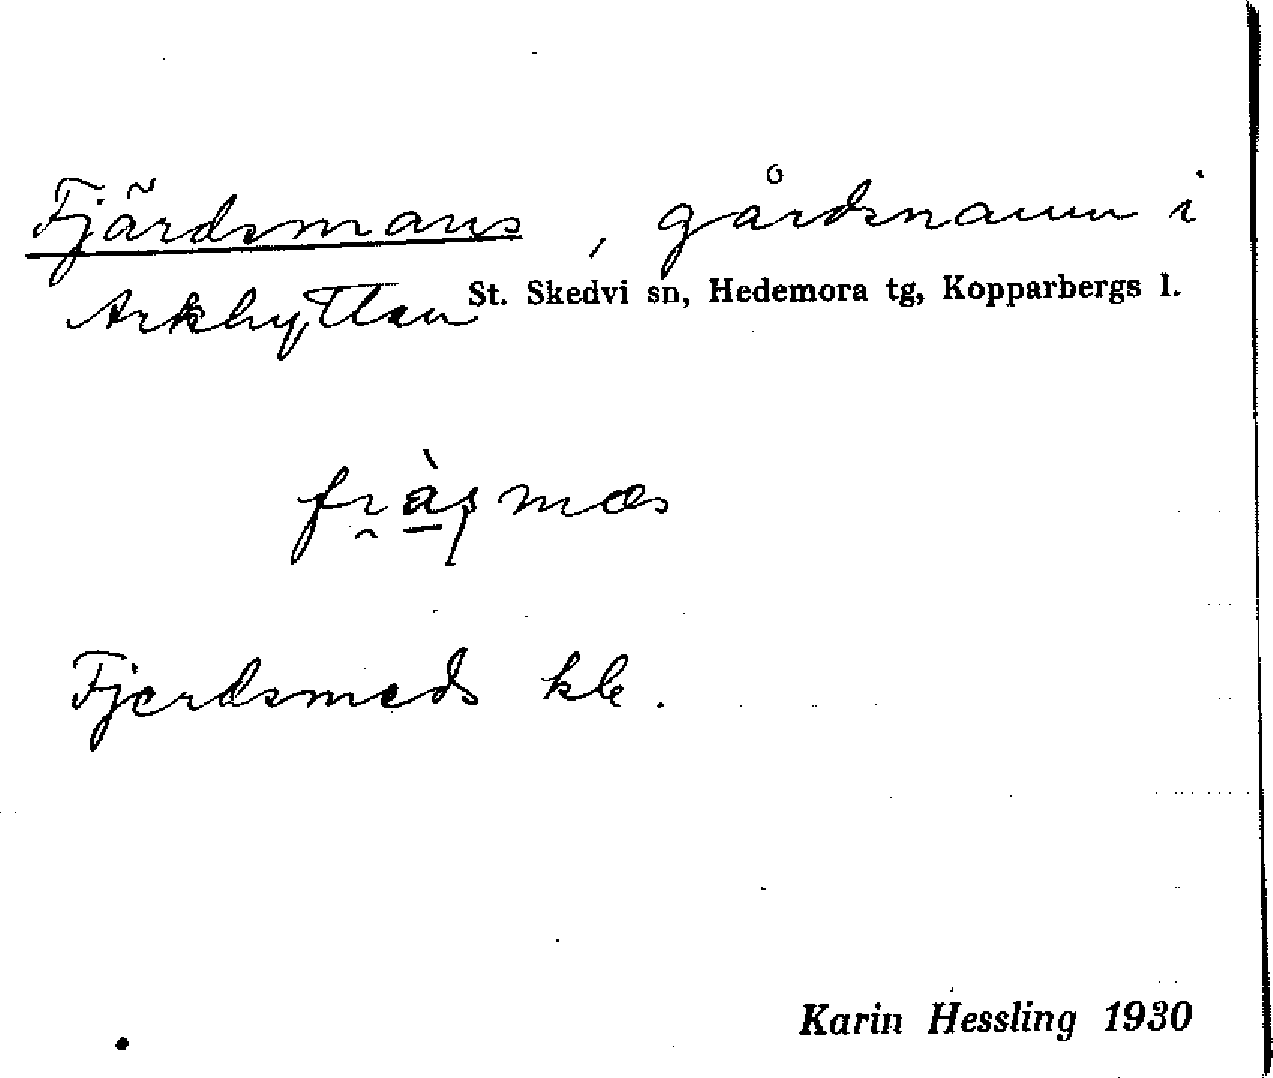 Fjärdsmans, gårdsnamn i
Arkhyttan St. Skedvi sn, Hedemora tg, Kopparbergs l.
Fjerdsmeds
Karin Hessling 1930